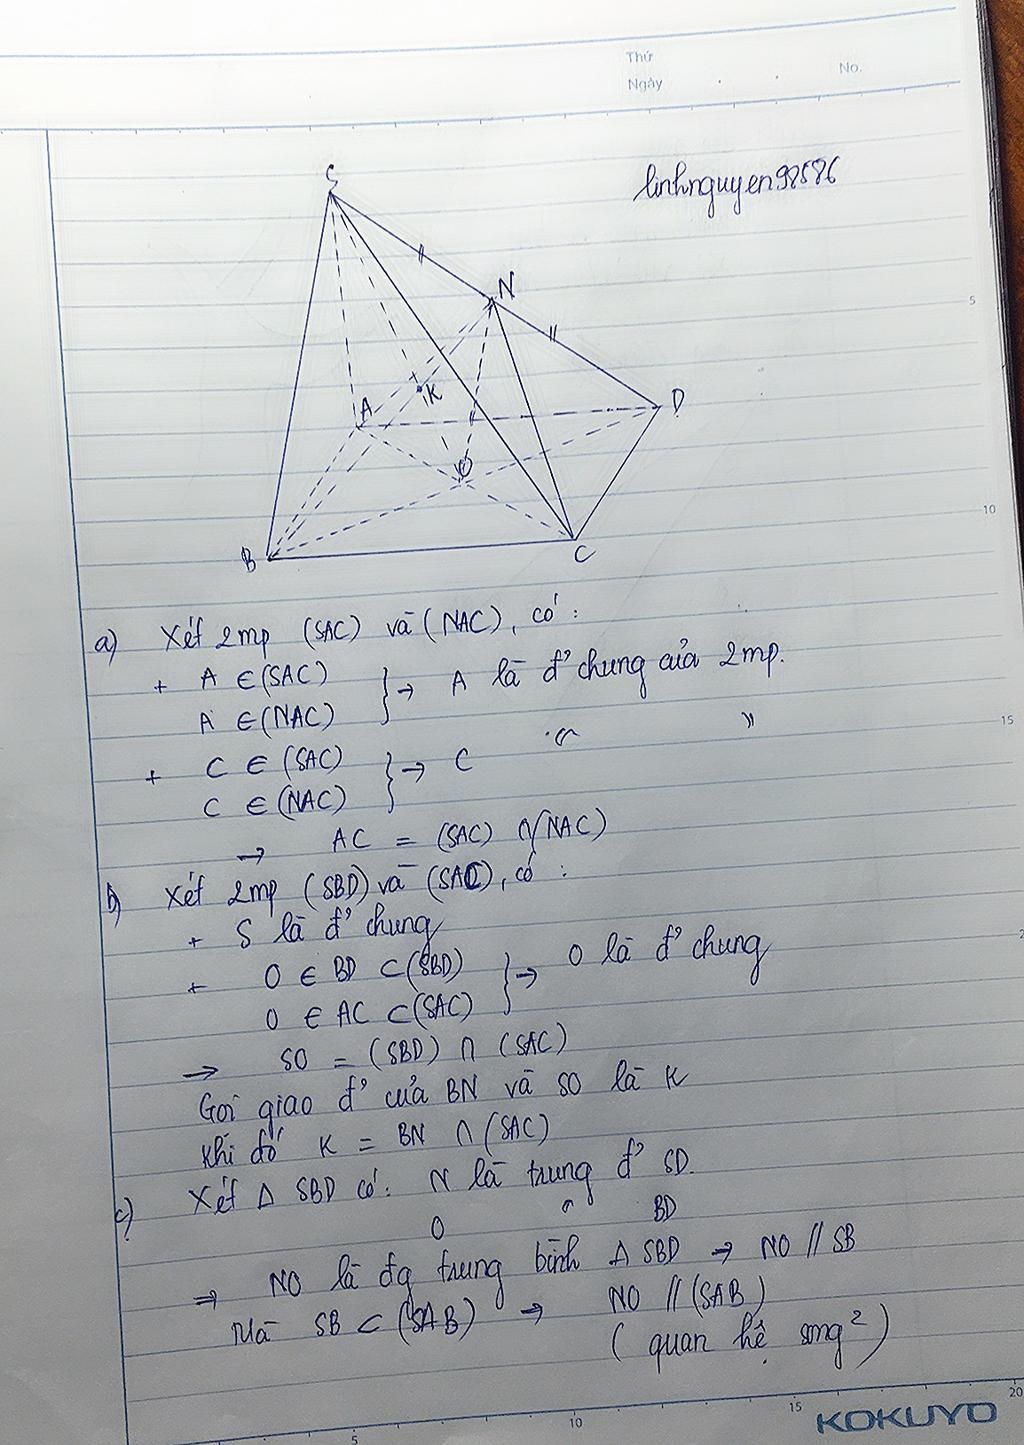 Thứ
Ngày . . No.
linhnguyen98586
S
N
A
K
D
O
B
C
5
10
15
a) Xét 2mp (SAC) và (NAC), có:
+ A ∈ (SAC)
A ∈ (NAC) } → A là đ' chung của 2mp.
+ C ∈ (SAC)
C ∈ (NAC) } → C "
→ AC = (SAC) ∩ (NAC)
b) Xét 2mp (SBD) và (SAC), có:
+ S là đ' chung
+ O ∈ BD ⊂ (SBD)
O ∈ AC ⊂ (SAC) } → O là đ' chung
→ SO = (SBD) ∩ (SAC)
Gọi giao đ' của BN và SO là K
Khi đó K = BN ∩ (SAC)
c) Xét Δ SBD có: N là trung đ' SD.
O " BD
⇒ NO là đg trung bình Δ SBD → NO // SB
Mà SB ⊂ (SAB) → NO // (SAB)
(quan hệ song²)
5
10
15
20
KOKUYO